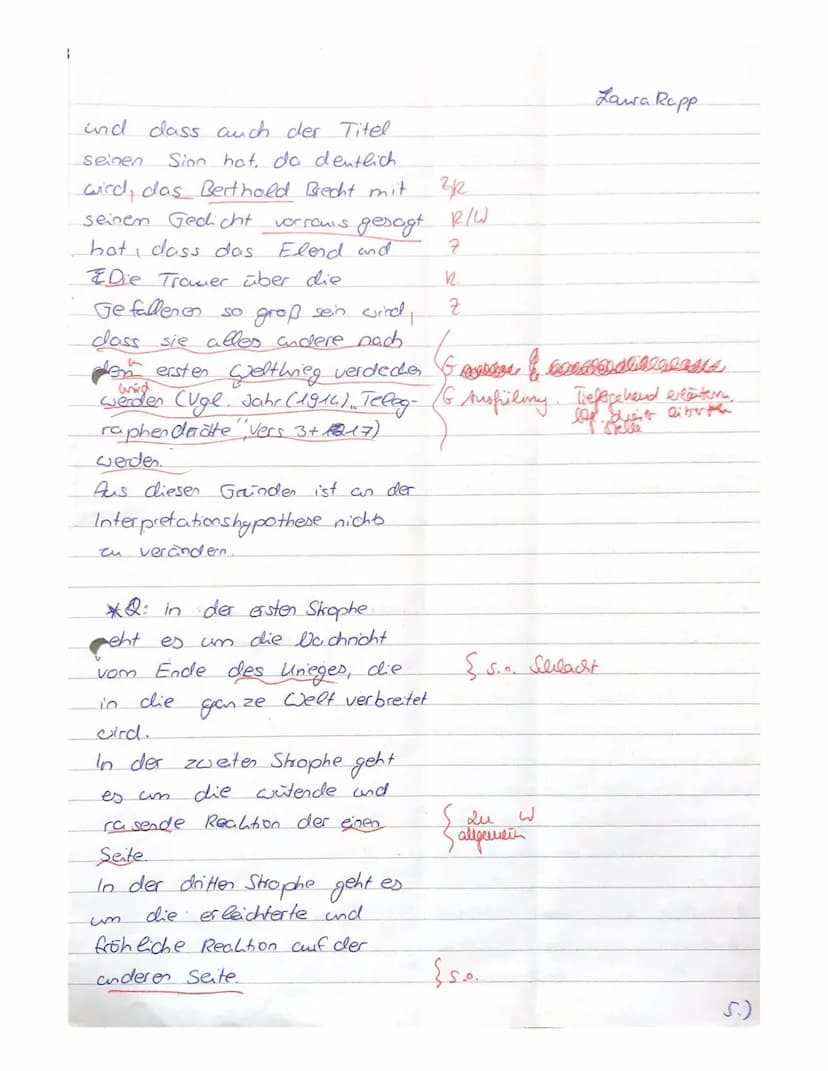 Laura Rapp
und dass auch der Titel
seinen Sinn hat, da deutlich
wird, das Berthold Brecht mit
seinem Gedicht vorraus gesagt R/W
hat, dass das Elend und Z
Die Trauer über die R
Gefallenen so groß sein wird, Z
dass sie alles andere nach
den ersten Weltkrieg verdecken G
wird
werden (Vgl. Jahr (1914) „Teleg- G Ausfülung. Tiefergehend erläutern
raphendrähte", Vers 3+17) Stelle
werden.
Aus diesen Gründen ist an der
Interpretationshypothese nichts
zu verändern.
*2: In der ersten Strophe
geht es um die Nachricht
vom Ende des Krieges, die s.o. Schlacht
in die ganze Welt verbreitet
wird.
In der zweiten Strophe geht
es um die wütende und
rasende Reaktion der einen zu W
Seite. allgemein
In der dritten Strophe geht es
um die erleichterte und
fröhliche Reaktion auf der
anderen Seite. s.o.
5.)